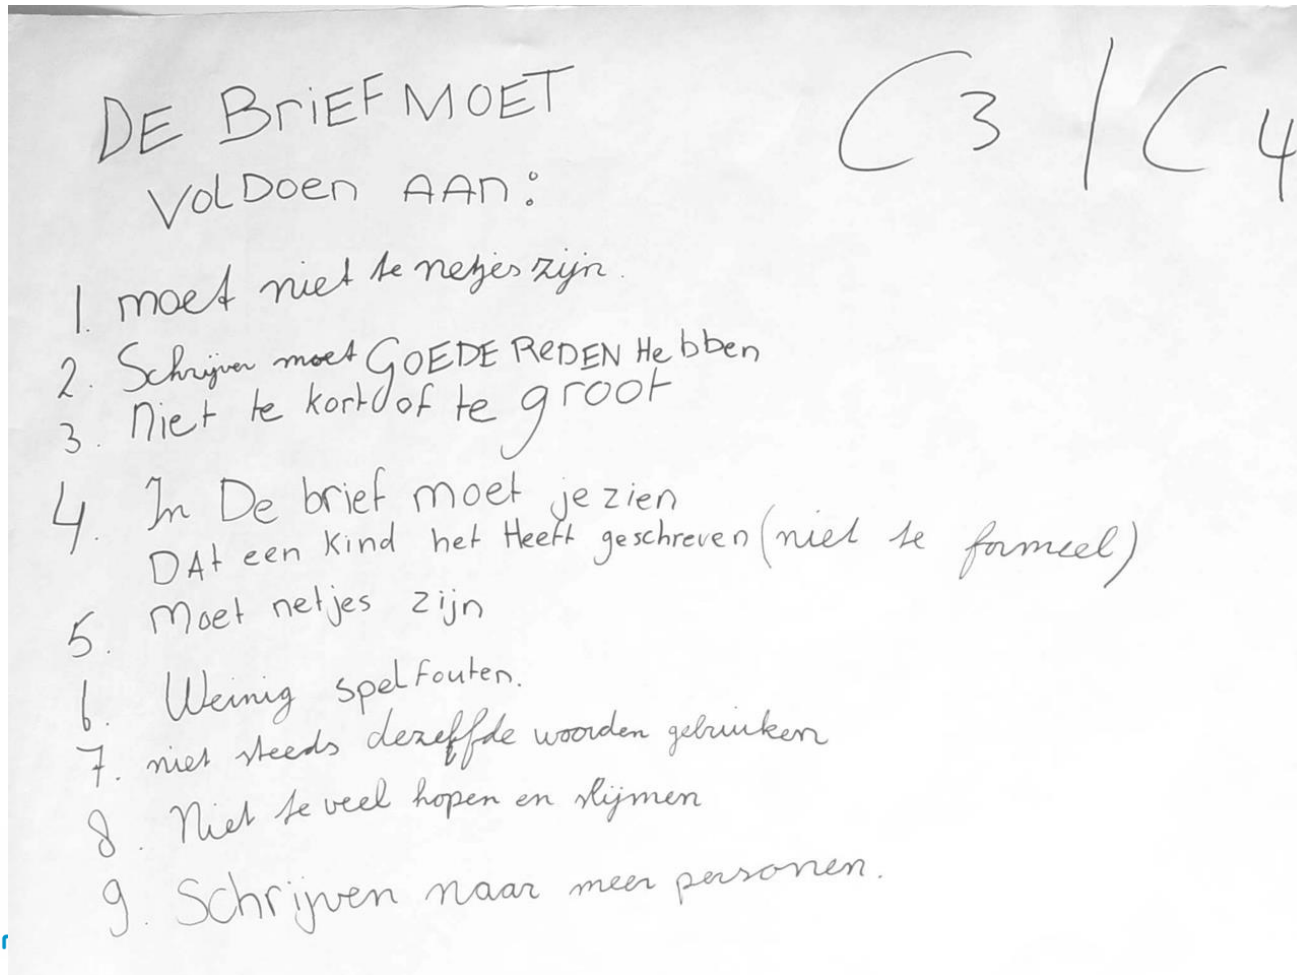 DE BriEF MOET
C3 / C4
VolDoen AAn:
1. moet niet te netjes zijn.
2. Schrijver moet GOEDE ReDEN Hebben
3. niet te kort of te groot
4. In De brief moet je zien
DAt een kind het Heeft geschreven (niet te formeel)
5. Moet netjes zijn
6. Weinig spelfouten.
7. niet steeds dezelfde woorden gebruiken
8. Niet te veel hopen en slijmen
9. Schrijven naar meer personen.